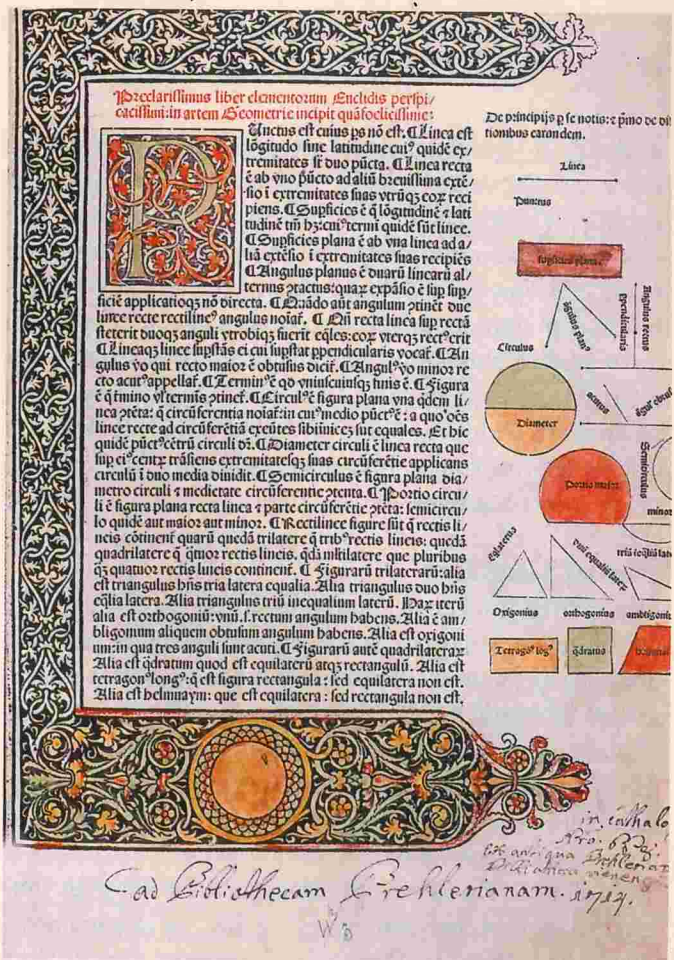 Preclarissimus liber elementorum Euclidis perspi/
cacissimi: in artem Geometrie incipit quãfoelicissime:
Punctus est cuius ps nõ est. ¶ Linea est
lõgitudo sine latitudine cuiꝰ quidẽ ex/
tremitates sũt duo pũcta. ¶ Linea recta
ẽ ab vno pũcto ad aliũ breuissima extẽ/
sio ĩ extremitates suas vtrũqꝫ eoꝝ reci
piens. ¶ Supficies ẽ q̃ lõgitudinẽ ⁊ lati
tudinẽ tm̃ hꝫ: cuiꝰ termi quidẽ sũt linee.
¶ Supficies plana ẽ ab vna linea ad a/
liã extẽsio ĩ extremitates suas recipiẽs
¶ Angulus planus ẽ duarũ linearũ al/
ternus ꝯtactus: quaꝝ expãsio ẽ sup sup/
ficiẽ applicatioqꝫ nõ directa. ¶ Quãdo aũt angulum ꝯtinẽt due
linee recte rectilineꝰ angulus noĩat̃. ¶ Qñ recta linea sup rectã
steterit duoqꝫ anguli vtrobiqꝫ fuerit eq̃les: eoꝝ vterqꝫ rectꝰ erit
¶ Lineaqꝫ linee supstãs ei cui supstat ppendicularis vocat̃. ¶ An
gulus vo qui recto maior ẽ obtusus dicit̃. ¶ Angulꝰ vo minor re
cto acutꝰ appellat̃. ¶ Terminꝰ ẽ qd vniuscuiusqꝫ finis ẽ. ¶ Figura
ẽ q̃ tmino vl terminis ꝯtinet̃. ¶ Circulꝰ ẽ figura plana vna q̃dem li/
nea ꝯtẽta: q̃ circũferentia noĩat̃: in cuiꝰ medio pũctꝰ ẽ: a quo oẽs
linee recte ad circũferẽtiã exeũtes sibiinuicẽ sut equales. Et hic
quidẽ pũctꝰ cẽtrũ circuli dr̃. ¶ Diameter circuli ẽ linea recta que
sup eiꝰ centꝝ trãsiens extremitatesqꝫ suas circũferẽtie applicans
circulũ ĩ duo media diuidit. ¶ Semicirculus ẽ figura plana dia/
metro circuli ⁊ medietate circũferentie ꝯtenta. ¶ Portio circu/
li ẽ figura plana recta linea ⁊ parte circũferẽtie ꝯtẽta: semicircu/
lo quidẽ aut maior aut minor. ¶ Rectilinee figure sũt q̃ rectis li/
neis cõtinent̃ quarũ quedã trilatere q̃ tribꝰ rectis lineis: quedã
quadrilatere q̃ q̃tuor rectis lineis. q̃dã mltilatere que pluribus
qꝫ quatuor rectis lineis continent̃. ¶ Figurarũ trilaterarũ: alia
est triangulus hñs tria latera equalia. Alia triangulus duo hñs
eq̃lia latera. Alia triangulus triũ inequalium laterũ. Haꝝ iterũ
alia est orthogoniũ: vnũ .s. rectum angulum habens. Alia ẽ am/
bligonium aliquem obtusum angulum habens. Alia est oxigoni
um: in qua tres anguli sunt acuti. ¶ Figurarũ autẽ quadrilateraꝝ
Alia est q̃dratum quod est equilaterũ atqꝫ rectangulũ. Alia est
tetragonꝰ longꝰ: q̃ est figura rectangula: sed equilatera non est.
Alia est helmuaym: que est equilatera: sed rectangula non est.
De principijs p se notis: ⁊ pmo de di
tionibus earundem.
Linea
Punctus
supficies plana
ãgulus planꝰ
ppendicularis
Angulus rectus
Circulus
acutus
Diameter
Semicirculus
Portio maior
minor
duũ equaliũ laterũ
Oxigonius
orthogonius
ambligoni
Tetragoꝰ logꝰ
q̃dratus
in cathalo
Nro.
ad Bibliothecam Prehlerianam. 1714.